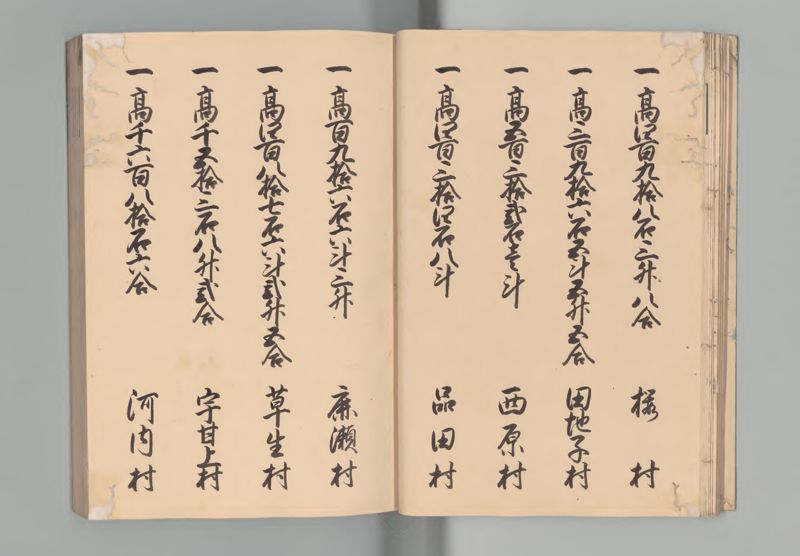 一高四百九拾八石三升八合 桜村
一高三百九拾六石五斗五升五合 田地子村
一高五百三拾弐石壱斗 西原村
一高四百三拾四石八斗 品田村
一高百九拾六石六斗三升 鹿瀬村
一高四百八拾七石六斗弐升五合 草生村
一高千五拾三石八升弐合 宇甘上村
一高千六百八拾石六合 河内村